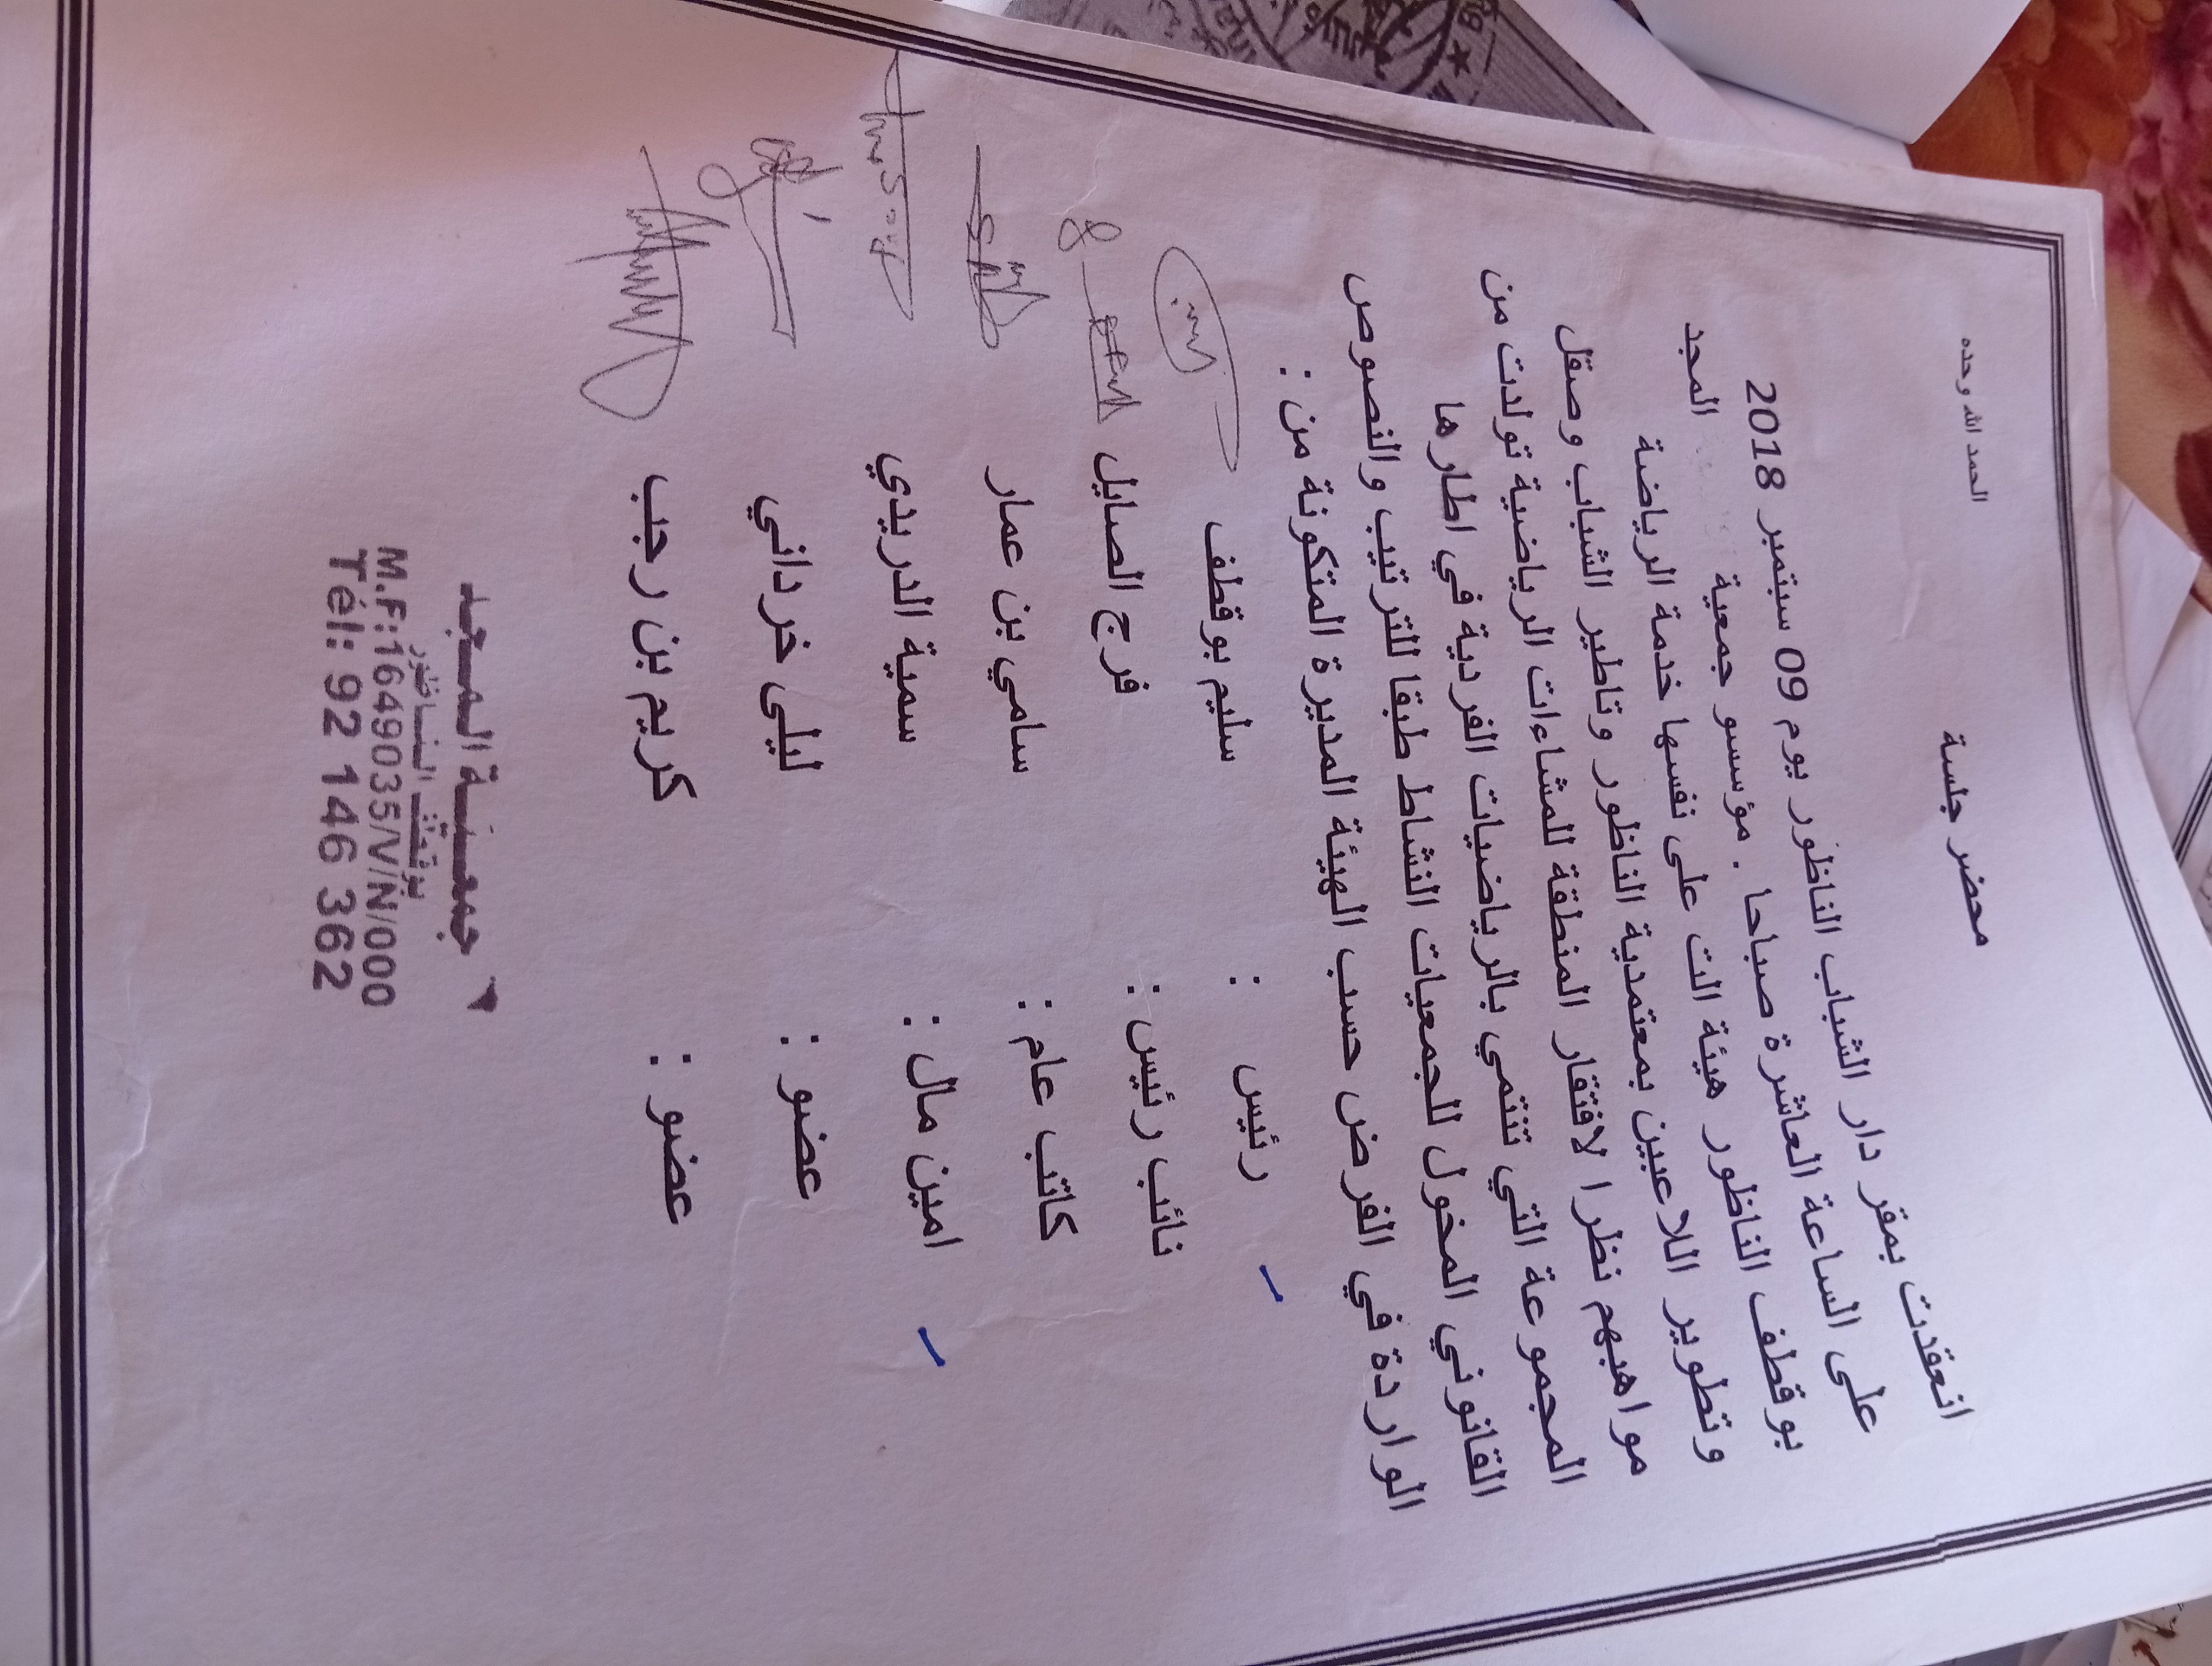 الحمد لله وحده
محضر جلسة
انعقدت بمقر دار الشباب الناظور يوم 09 سبتمبر 2018
على الساعة العاشرة صباحا . مؤسسو جمعية المجد
بوقطف الناظور هيئة الت على نفسها خدمة الرياضة
وتطوير اللاعبين بمعتمدية الناظور وتاطير الشباب وصقل
مواهبهم نظرا لافتقار المنطقة للمشاءات الرياضية تولدت من
المجموعة التي تنتمي بالرياضيات الفردية في اطارها
القانوني المخول للجمعيات النشاط طبقا للترتيب والنصوص
الواردة في الغرض حسب الهيئة المديرة المتكونة من :
رئيس : سليم بوقطف
نائب رئيس : فرج الصايل
كاتب عام : سامي بن عمار
امين مال : سمية الدريدي
عضو : ليلى خرداني
عضو : كريم بن رجب
جمعية المجد
بوقطف الناظور
M.F:1649035/V/N/000
Tél: 92 146 362